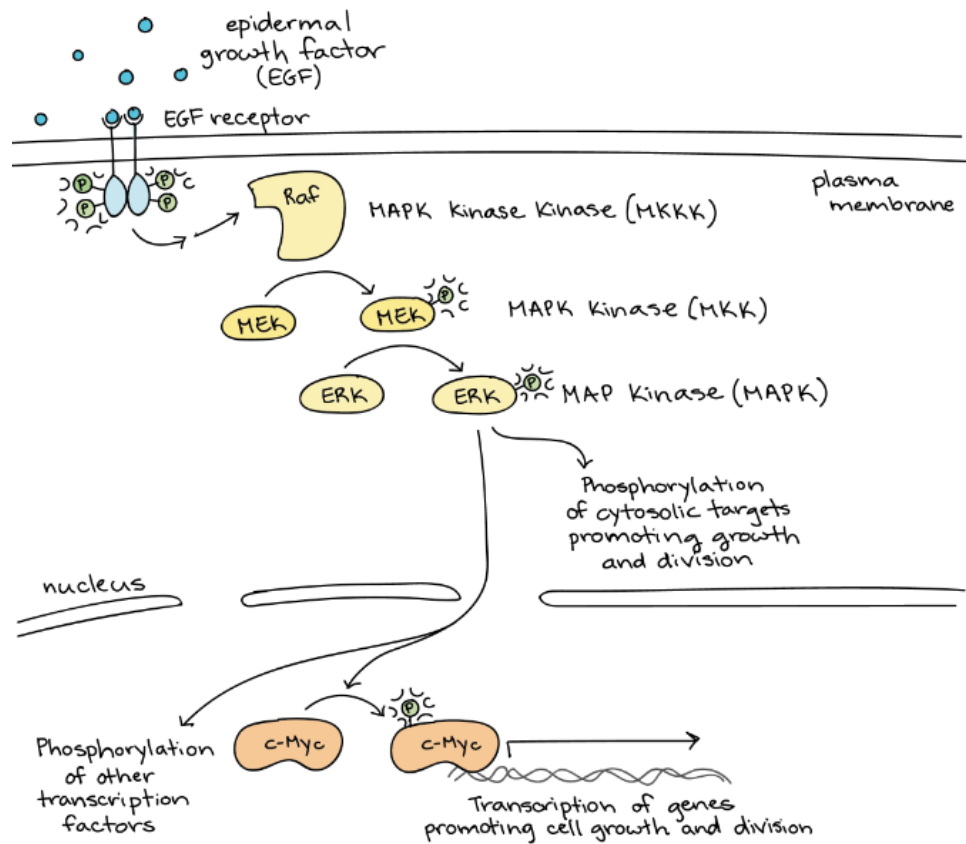 epidermal
growth factor
(EGF)
EGF receptor
P
P
P
P
plasma
membrane
Raf
MAPK Kinase Kinase (MKKK)
MEK
MEK
P
MAPK Kinase (MKK)
ERK
ERK
P
MAP Kinase (MAPK)
Phosphorylation
of cytosolic targets
promoting growth
and division
nucleus
P
c-Myc
c-Myc
Phosphorylation
of other
transcription
factors
Transcription of genes
promoting cell growth and division